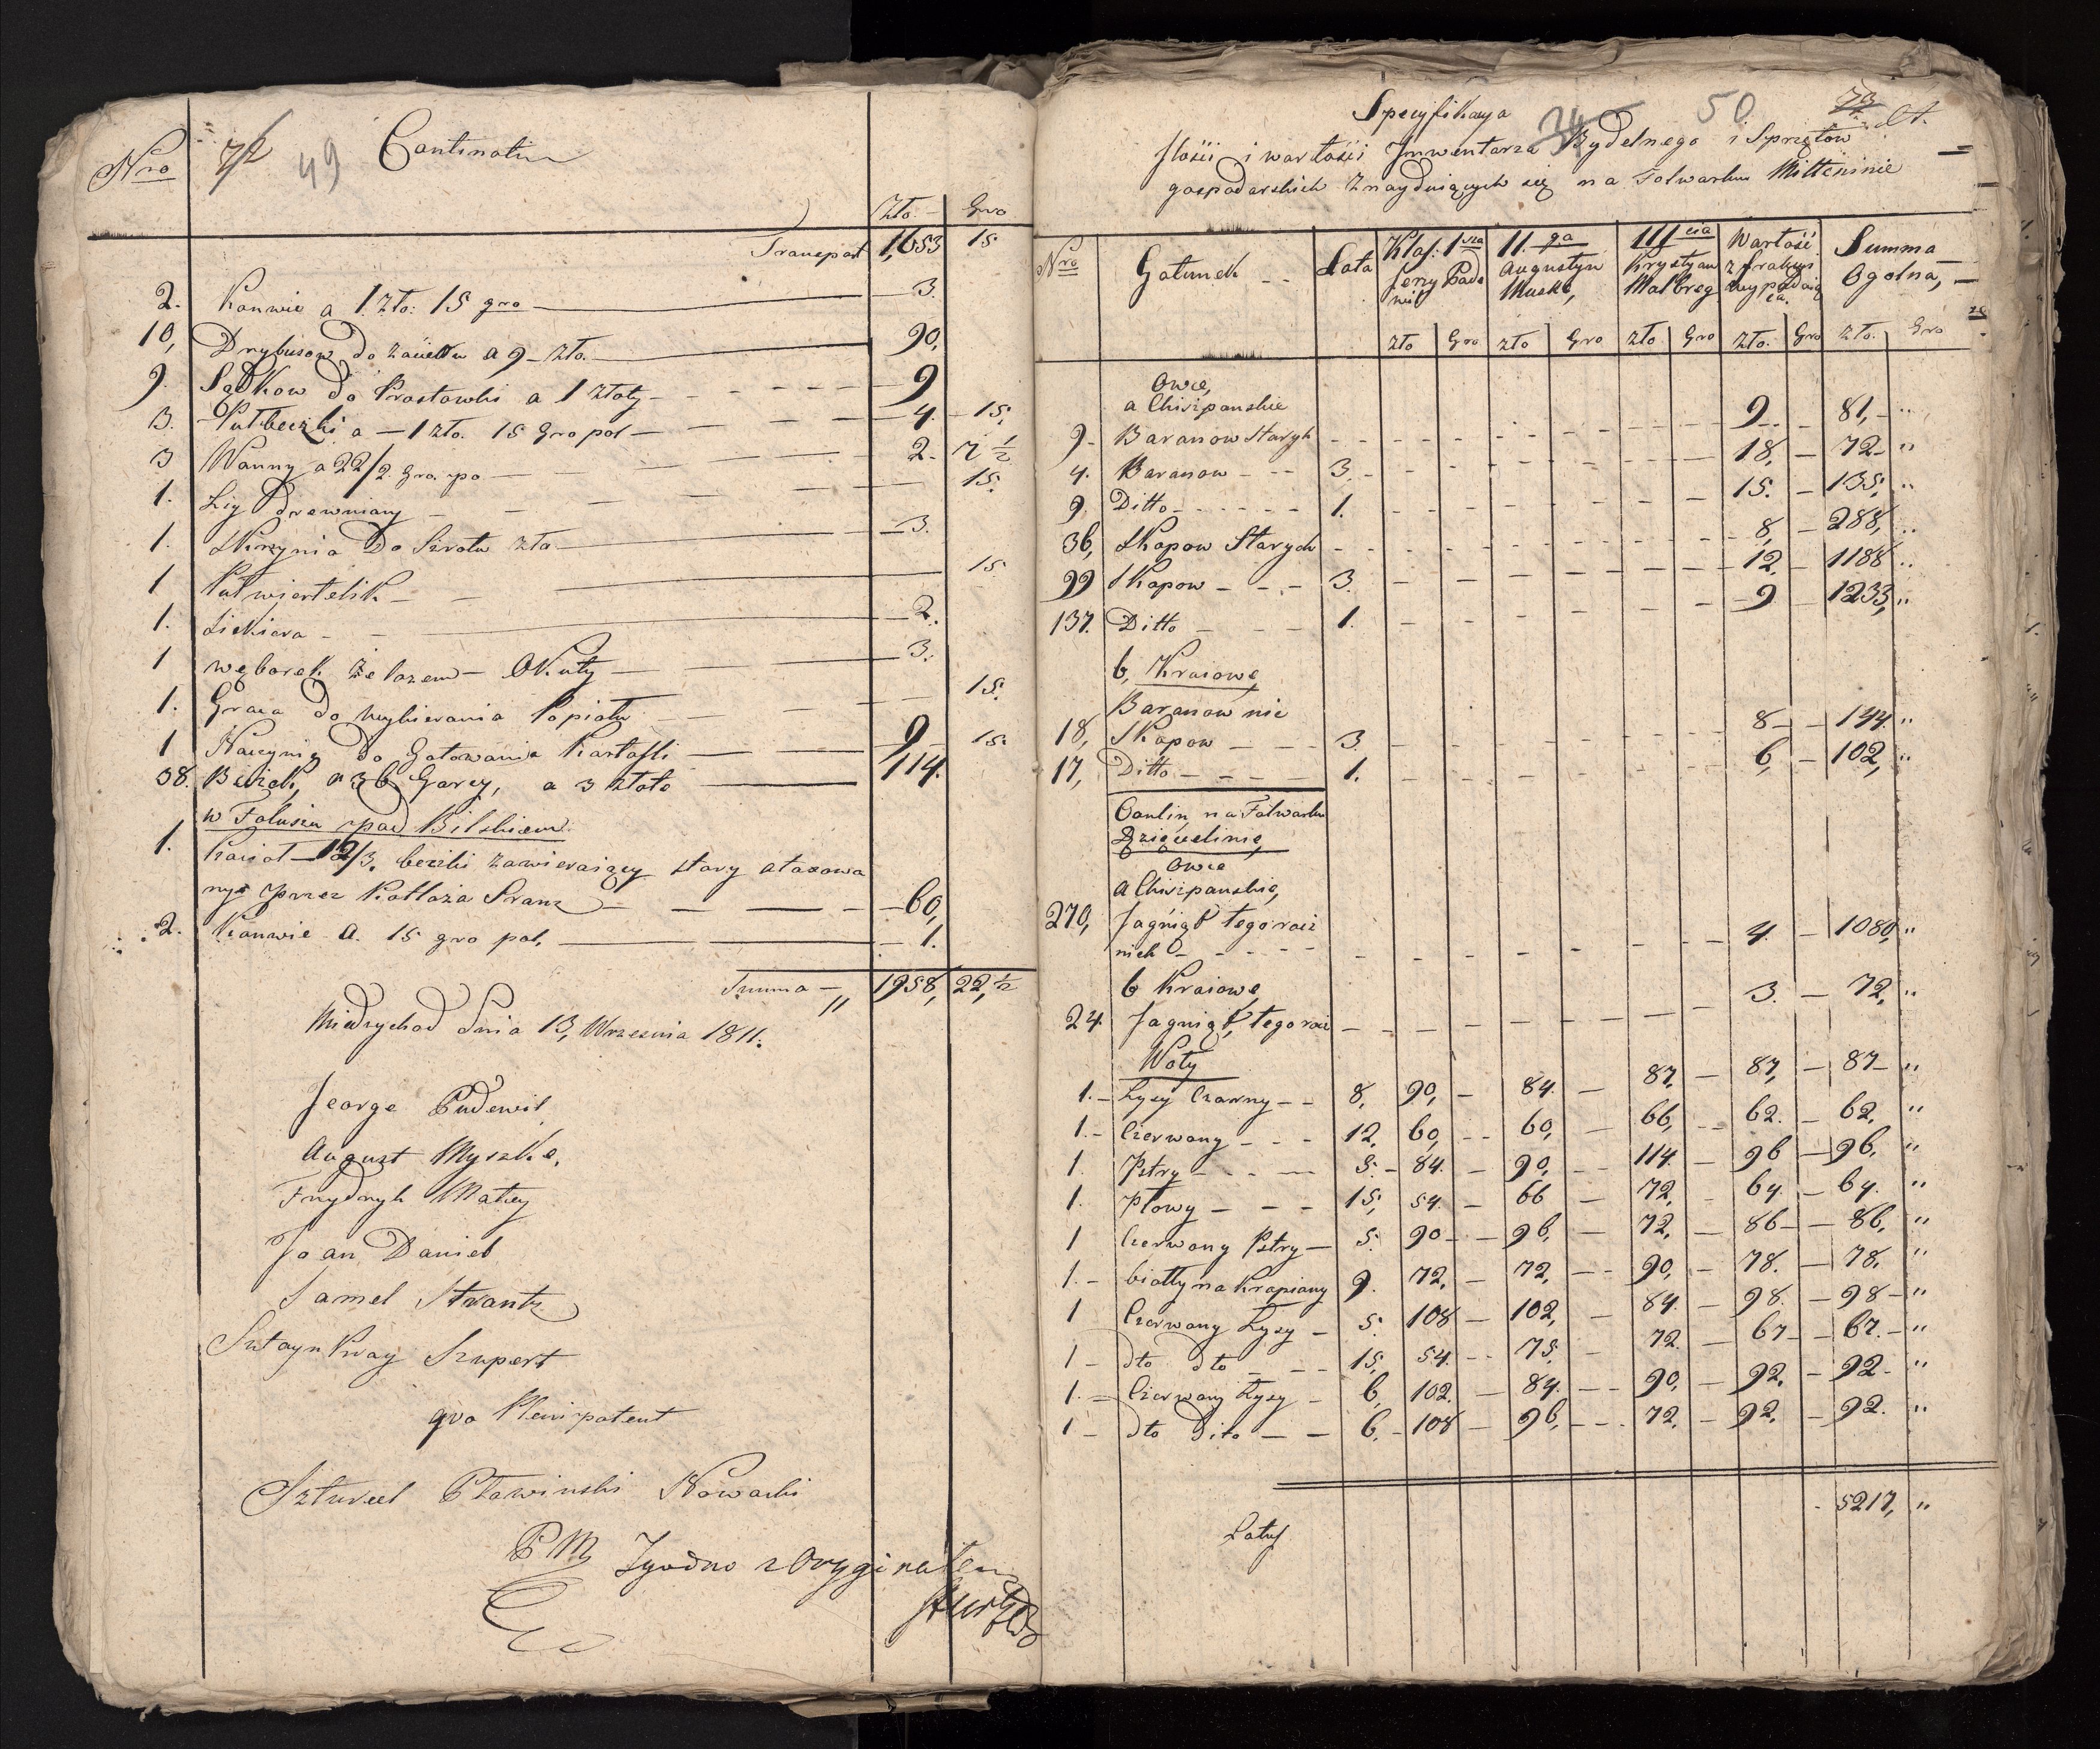 Nro 72 49 Continatur
Zto. Gro
Transport 1,653 15
2. Konwie a 1. zto: 15 gro 3.
10, Drybusow do zacieru a 9 zto. 90,
9. Sądkow do Prostowki a 1 złoty 9
3. Pułbeczki a 1 zto. 15 Gro pol 4. 15.
3 Wanny a 22/2 Gro. po 2. 7 1/2
1. Liy drewniany 15.
1. Skrzynia do Szrotu zto 3.
1 Pułwiertelik 15.
1. Siekiera 2.
1 węborek żelazem Okuty 3.
1. Graca do wybierania Popiołu 15.
1 Naczynią do Gotowania Kartofli 9 15.
38. Beczek, a 36 Garcy, a 3 złote 114.
w Folusiu pod Bilskiem.
1. Kocioł 12/3. beczki zawieraiący stary otaxowa
nyż przez Kotlaża Franz 60,
2. Konwie a. 15 gro pol. 1.
Summa 1958, 22, 1/2
Miedzychod dnia 13, Września 1811.
Jeorge Pudewil
August Myszke.
Frydrych Matey
Joan Daniel
Samel Strantz
Sutaynkray Szupert
qva Plenipotent
Sztureel Pławinski Nowacki
PM Zgodno z Oryginałem
Specyfikacya 34 50 73
Jlości i wartości Jnwentarza Bydelnego i Sprzętów
gospodarskich znayduiących się na Folwarku Mitteninie
Nro Gatunek Lata Klas. 1sza II. ga III cia Wartość Summa
Jerzy Pude Augustyn Krystyan z frakcyi Ogolna,
wil Muske, Malbreg wypadaią
ca.
zto Gro zto Gro zto Gro zto. Gro zto. Gro
Owce,
a Chiszpanskie
9 Baranow Starych 9 81, "
4. Baranow 3. 18, 72 "
9. Ditto 1. 15. 135, "
36, Skopow Starych 8, 288, "
99 Skopow 3. 12 1188 "
137. Ditto 1. 9 1233, "
b, Kraiowe
Baranow nic
18, Skopow 3. 8 144. "
17, Ditto 1. 6, 102, "
Oonlin na Folwarku
Dzięcielinie
Owce
a Chiszpanskie,
270, Jagniąt tegorocz
nich 4. 1080, "
b Kraiowe
24. Jagniąt tegorocz 3. 72, "
Woły
1. Łysy Czarny 8, 90, 84. 87. 87, 87 "
1. Czerwony 12. 60, 60, 66, 62. 62, "
1. Pstry 5. 84. 90, 114. 96 96, "
1. Płowy 15, 54. 66 72, 64. 64. "
1 Czerwony Pstry 5. 90 96, 72, 86 86, "
1. białły na Krapiany 9. 72, 72, 90, 78. 78, "
1 Czerwony Łysy 5. 108 102, 84. 98. 98 "
1 dto dto 15, 54. 75. 72. 67 67. "
1. Czerwony Łysy 6, 102. 84. 90, 92. 92 "
1 dto Dito 6. 108 96, 72, 92. 92. "
Latus 5217, "